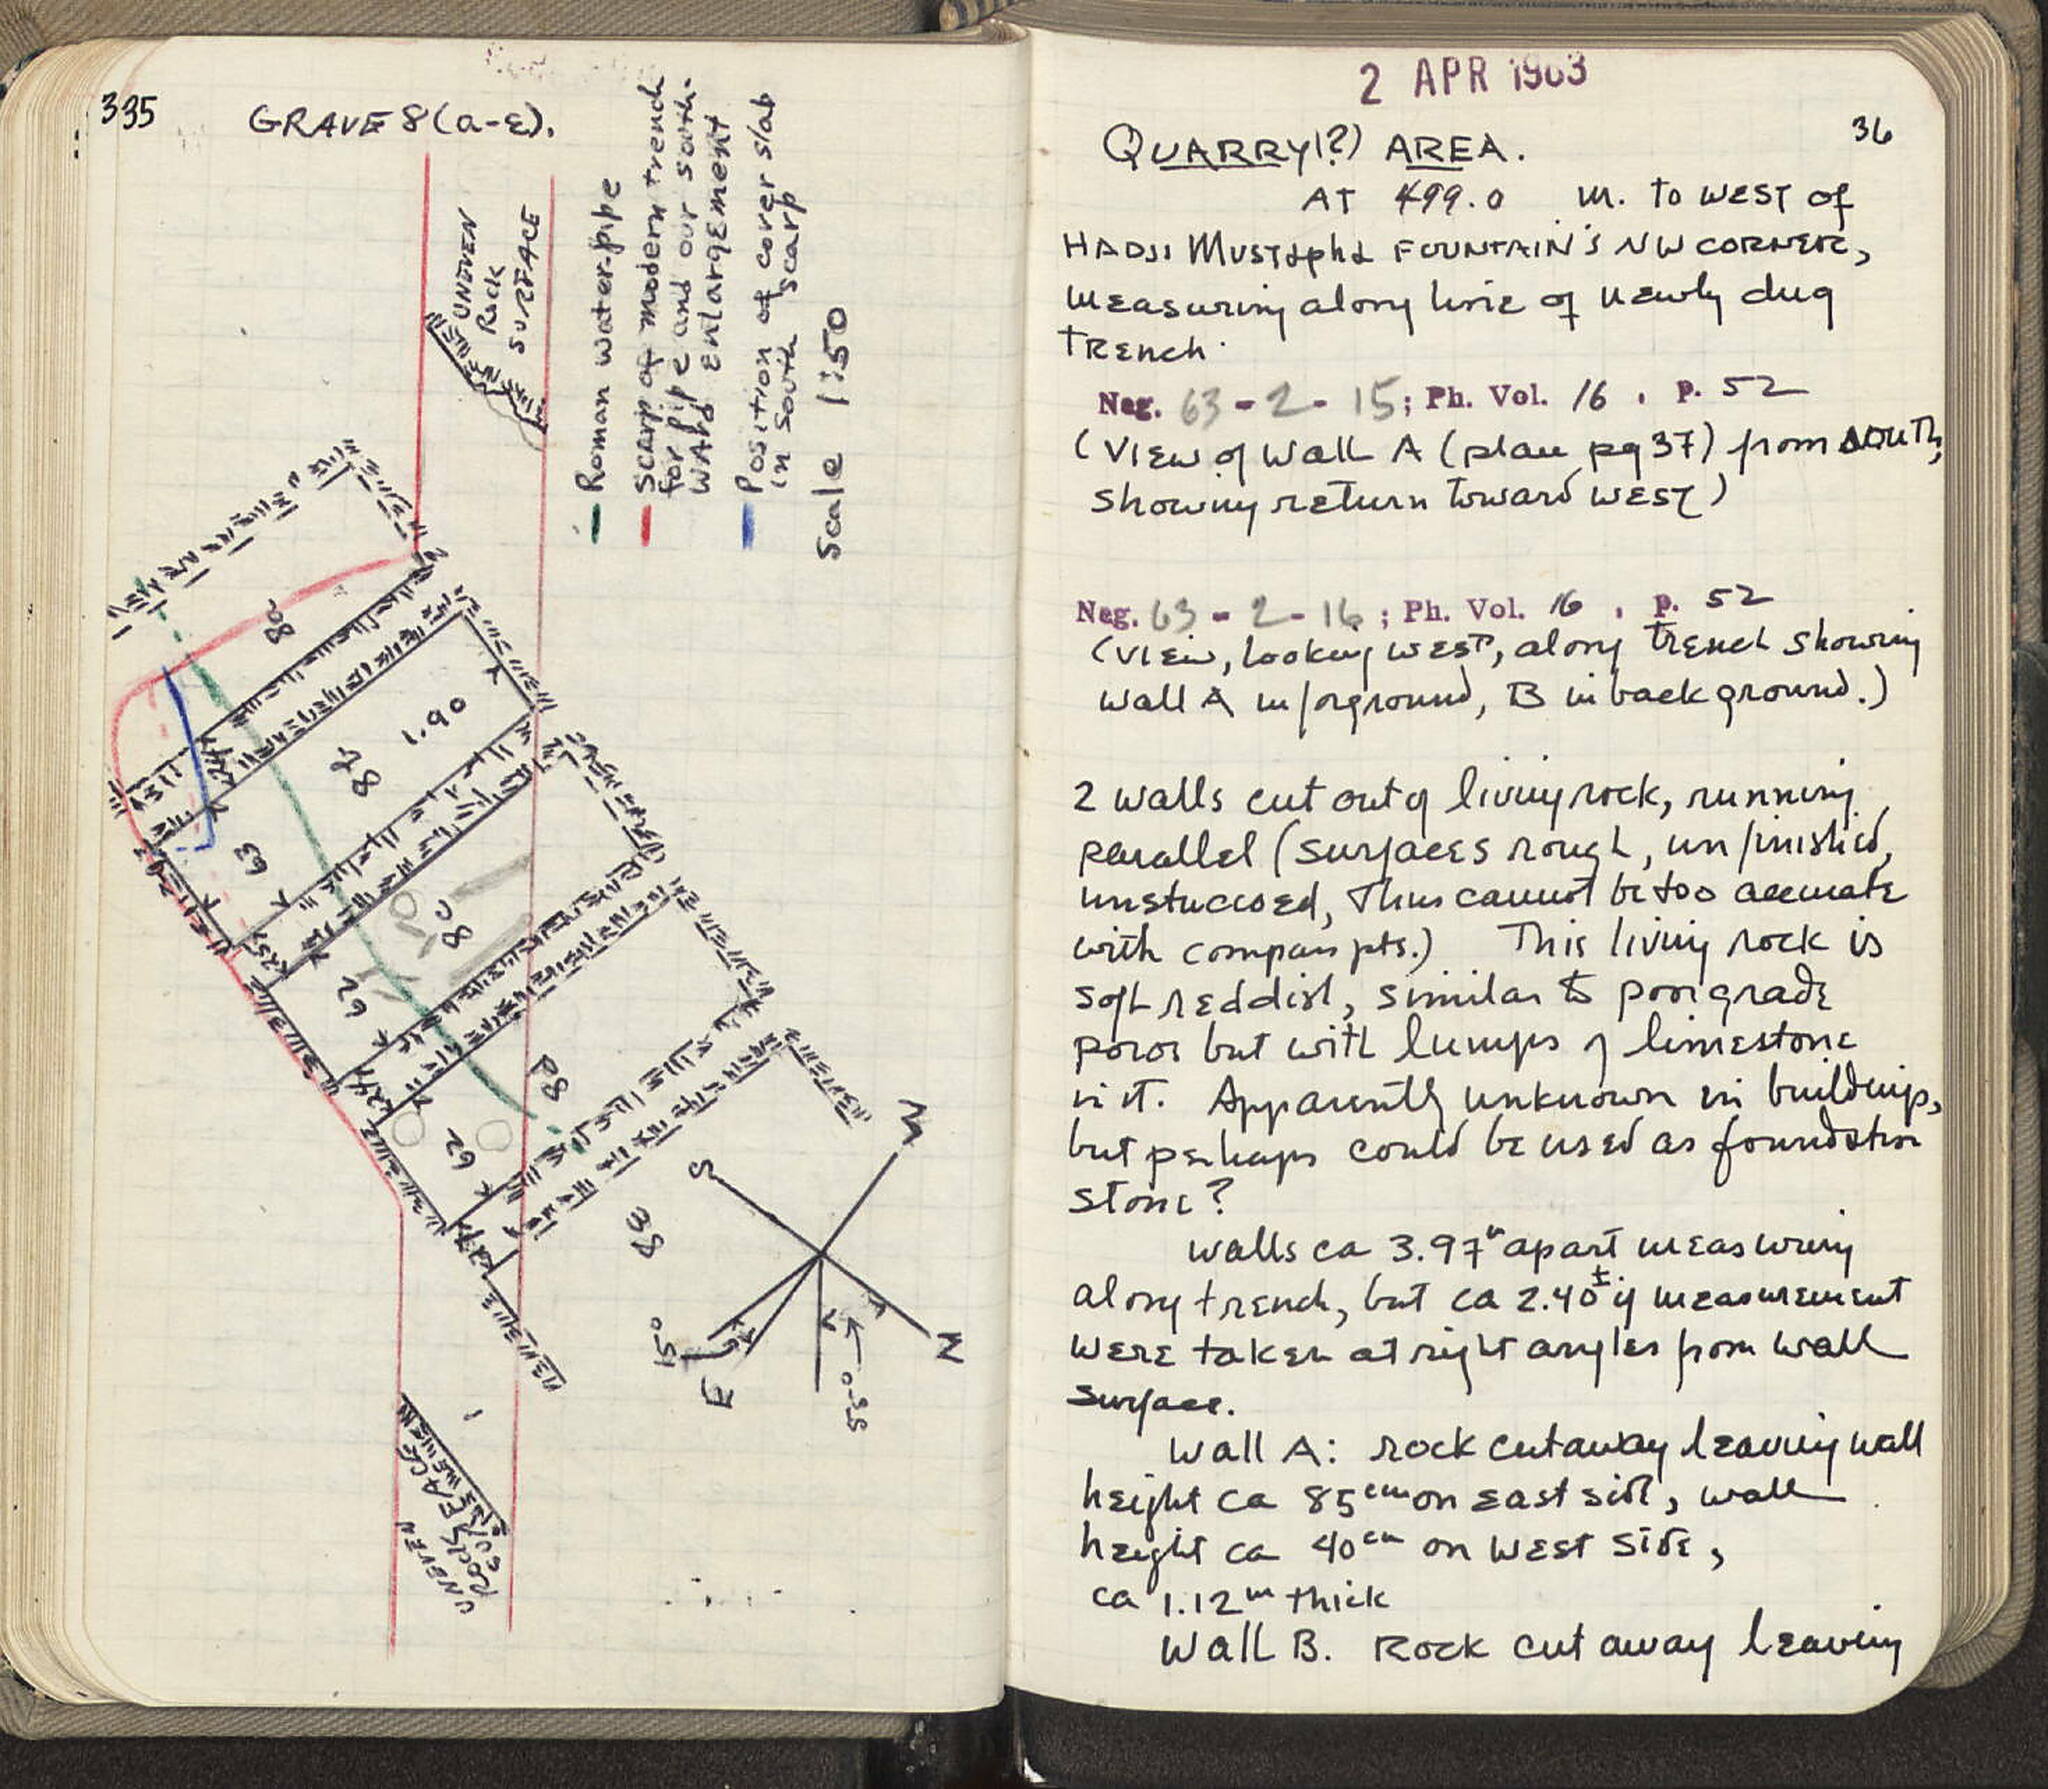 335
GRAVE 8(a-ε).
UNEVEN
Rock
SURFACE
– Roman water-pipe
– Scarp of modern trench
for pipe and our south-
ward enlargement
– Position of cover slab
in south scarp
Scale 1:50
8a
8b
1.90
63
8c
62
8d
62
8ε
S
W
N
E
15°
55°
UNEVEN
Rock
SURFACE
2 APR 1963
36
QUARRY(?) AREA.
AT 499.0 m. to west of
HADJI Mustapha FOUNTAIN'S NW CORNER,
measuring along line of newly dug
trench.
Neg. 63-2-15; Ph. Vol. 16, p. 52
(View of Wall A (plan pg 37) from south,
showing return toward west)
Neg. 63-2-16; Ph. Vol. 16, p. 52
(View, looking west, along trench showing
Wall A in forground, B in background.)
2 walls cut out of living rock, running
parallel (surfaces rough, unfinished,
unstuccoed, thus cannot be too accurate
with compass pts.) This living rock is
soft reddish, similar to poor grade
poros but with lumps of limestone
in it. Apparently unknown in buildings,
but perhaps could be used as foundation
stone?
Walls ca 3.97m apart measuring
along trench, but ca 2.40± if measurement
were taken at right angles from wall
surface.
Wall A: rock cut away leaving wall
height ca 85cm on east side, wall
height ca 40cm on west side,
ca 1.12m thick
Wall B. Rock cut away leaving